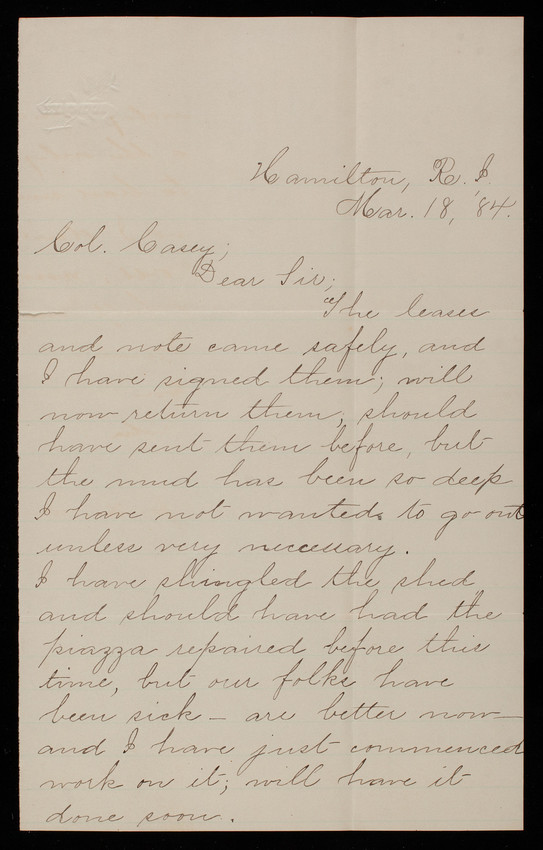 Hamilton, R. I.
Mar. 18, '84.
Col. Casey;
Dear Sir;
The leases
and note came safely, and
I have signed them; will
now return them; should
have sent them before, but
the mud has been so deep
I have not wanted to go out
unless very necessary.
I have shingled the shed
and should have had the
piazza repaired before this
time, but our folks have
been sick – are better now –
and I have just commenced
work on it; will have it
done soon.